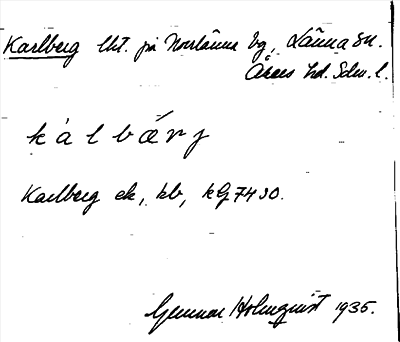 Karlberg lht. på Norrlänna Eg., Länna sn.
Åkers hd. Sdm. l.
kàlbǽrj
Karlberg ek, kb, kG7430.
Gunnar Holmquist 1935.